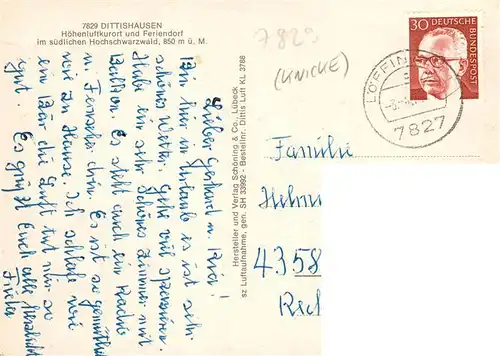 7829 DITTISHAUSEN
Höhenluftkurort und Feriendorf
im südlichen Hochschwarzwald, 850 m ü. M.
7829
(KNICKE)
30 DEUTSCHE
BUNDESPOST
LÖFFINGEN
7827
Lieber Gerhard u.
Bin hier in Urlaub es ist sehr
schönes Wetter. Gehe viel spazieren.
Habe ein sehr schönes Zimmer mit
Balkon. Es steht auch ein Radio
u. Fernseher drin. Es ist so gemütlich
wie zu Hause. Ich schlafe wie
ein Bär die Luft tut mir so
gut. Es grüßt Euch alle herzlichst
Hersteller und Verlag Schöning & Co., Lübeck
sz Luftaufnahme, gen. SH 33992 - Bestellnr. Dittis Luft KL 3768
Familie
Helmu
4358
Recl